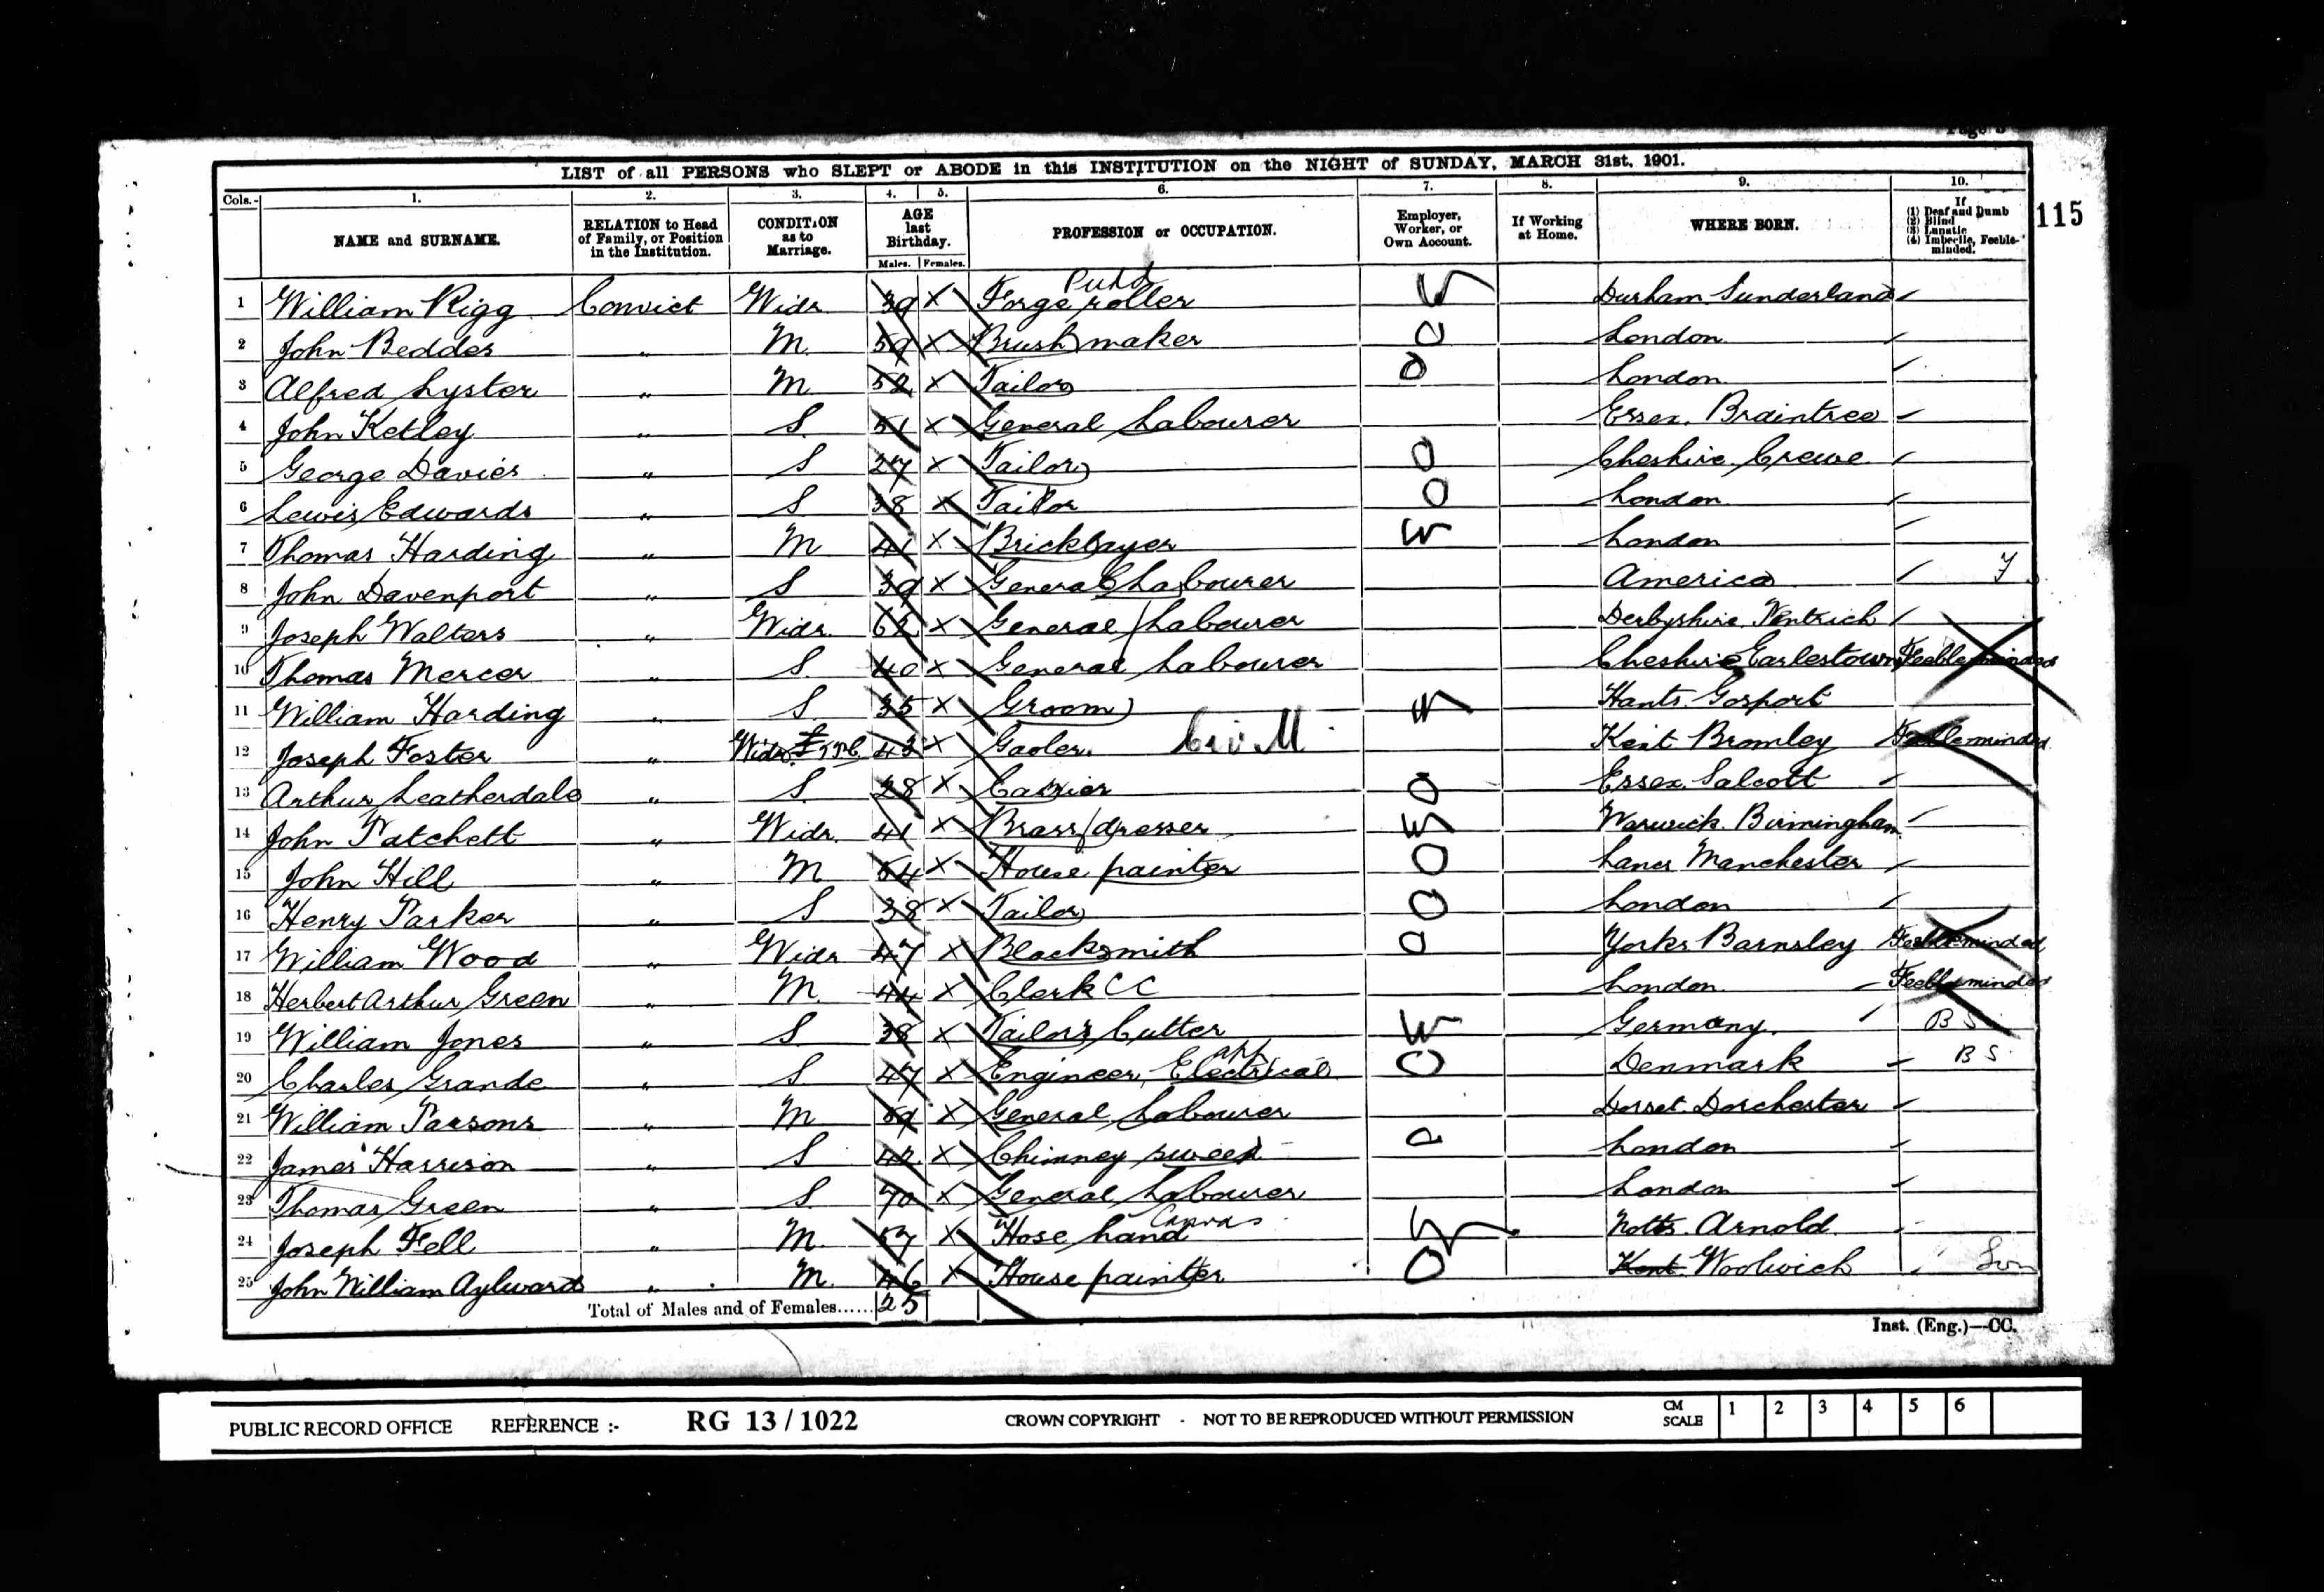 Page 5
LIST of all PERSONS who SLEPT or ABODE in this INSTITUTION on the NIGHT of SUNDAY, MARCH 31st, 1901.
Cols.- 1. 2. 3. 4. 5. 6. 7. 8. 9. 10.
NAME and SURNAME. RELATION to Head of Family, or Position in the Institution. CONDITION as to Marriage. AGE last Birthday. Males. Females. PROFESSION or OCCUPATION. Employer, Worker, or Own Account. If Working at Home. WHERE BORN. If (1) Deaf and Dumb (2) Blind (3) Lunatic (4) Imbecile, Feeble-minded.
115
1 William Rigg Convict Widr 39 X Forge roller Durham Sunderland
2 John Beddes " M. 59 X Brush maker London
3 Alfred Lyster " M 52 X Tailor London
4 John Ketley " S. 51 X General Labourer Essex. Braintree
5 George Davies " S 27 X Tailor Cheshire. Crewe
6 Lewis Edwards " S 38 X Tailor London
7 Thomas Harding " M 41 X Bricklayer London
8 John Davenport " S 39 X General Labourer America
9 Joseph Walters " Widr 62 X General Labourer Derbyshire. Pentrich
10 Thomas Mercer " S. 40 X General Labourer Cheshire Earlestown Feeble minded
11 William Harding " S. 35 X Groom Hants. Gosport
12 Joseph Foster " Widr. 43 X Gaoler. Kent Bromley Feebleminded
13 Arthur Leatherdale " S. 28 X Carrier Essex. Salcott
14 John Patchett " Widr. 41 X Brass dresser Warwick. Birmingham
15 John Hill " M 54 X House painter Lancs Manchester
16 Henry Parker " S 38 X Tailor London
17 William Wood " Widr 47 X Blacksmith Yorks Barnsley Feebleminded
18 Herbert Arthur Green " M 44 X Clerk CC London Feebleminded
19 William Jones " S. 38 X Tailor's Cutter Germany. B S
20 Charles Grande " S 47 X Engineer, Electrical app Denmark B S
21 William Parsons " M 59 X General Labourer Dorset. Dorchester
22 James Harrison " S 42 X Chimney sweep London
23 Thomas Green " S. 70 X General Labourer London
24 Joseph Fell " M. 57 X Hose hand Notts. Arnold
25 John William Aylward " M. 46 X House painter Kent Woolwich
Total of Males and of Females...... 25
Inst. (Eng.)—CC.
PUBLIC RECORD OFFICE REFERENCE :- RG 13/1022 CROWN COPYRIGHT - NOT TO BE REPRODUCED WITHOUT PERMISSION CM SCALE 1 2 3 4 5 6